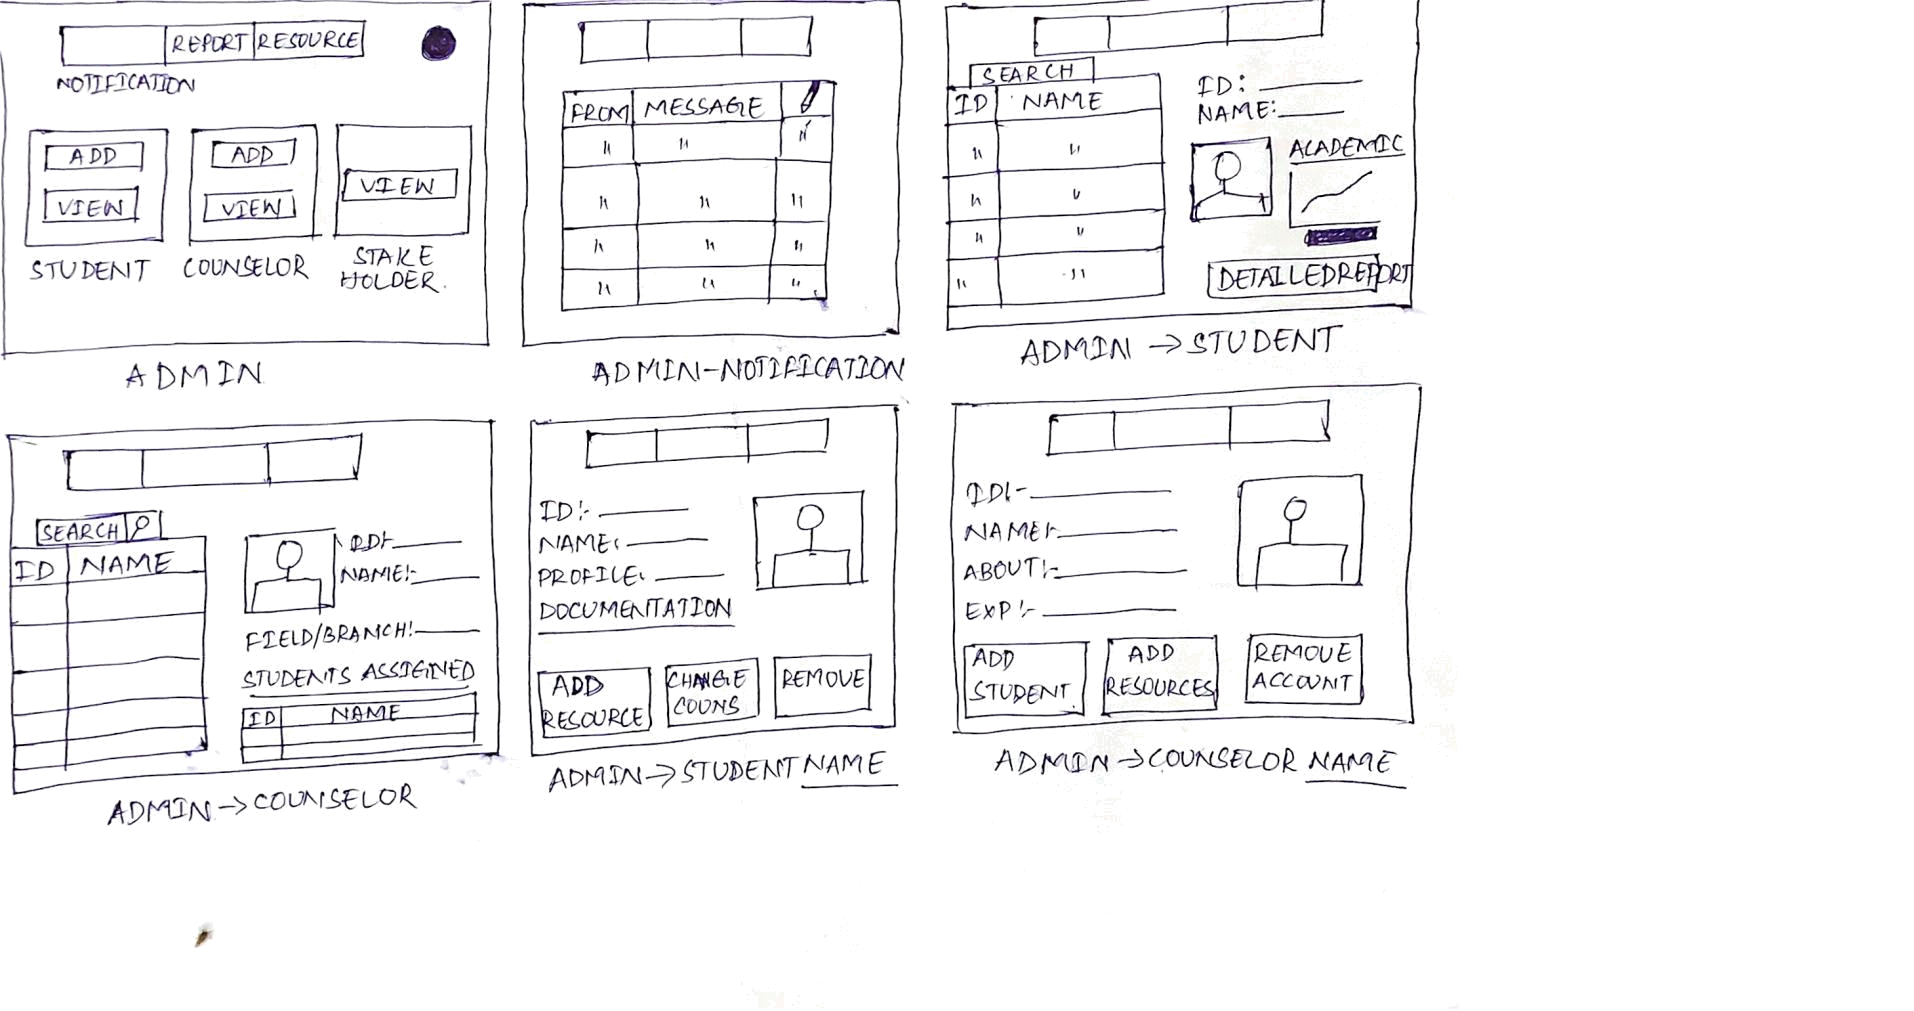 REPORT RESOURCE
NOTIFICATION
ADD
VIEW
STUDENT
ADD
VIEW
COUNSELOR
VIEW
STAKE
HOLDER.
ADMIN
FROM MESSAGE
" " "
" " "
" " "
" " "
ADMIN-NOTIFICATION
SEARCH
ID NAME
" "
" "
" "
" "
ID:
NAME:
ACADEMIC
DETAILEDREPORT
ADMIN → STUDENT
SEARCH
ID NAME
ID:-
NAME:-
FIELD/BRANCH:-
STUDENTS ASSIGNED
ID NAME
ADMIN → COUNSELOR
ID:-
NAME:
PROFILE:
DOCUMENTATION
ADD
RESOURCE
CHANGE
COUNS
REMOVE
ADMIN → STUDENT NAME
ID:-
NAME:-
ABOUT:-
EXP:-
ADD
STUDENT
ADD
RESOURCES
REMOVE
ACCOUNT
ADMIN → COUNSELOR NAME